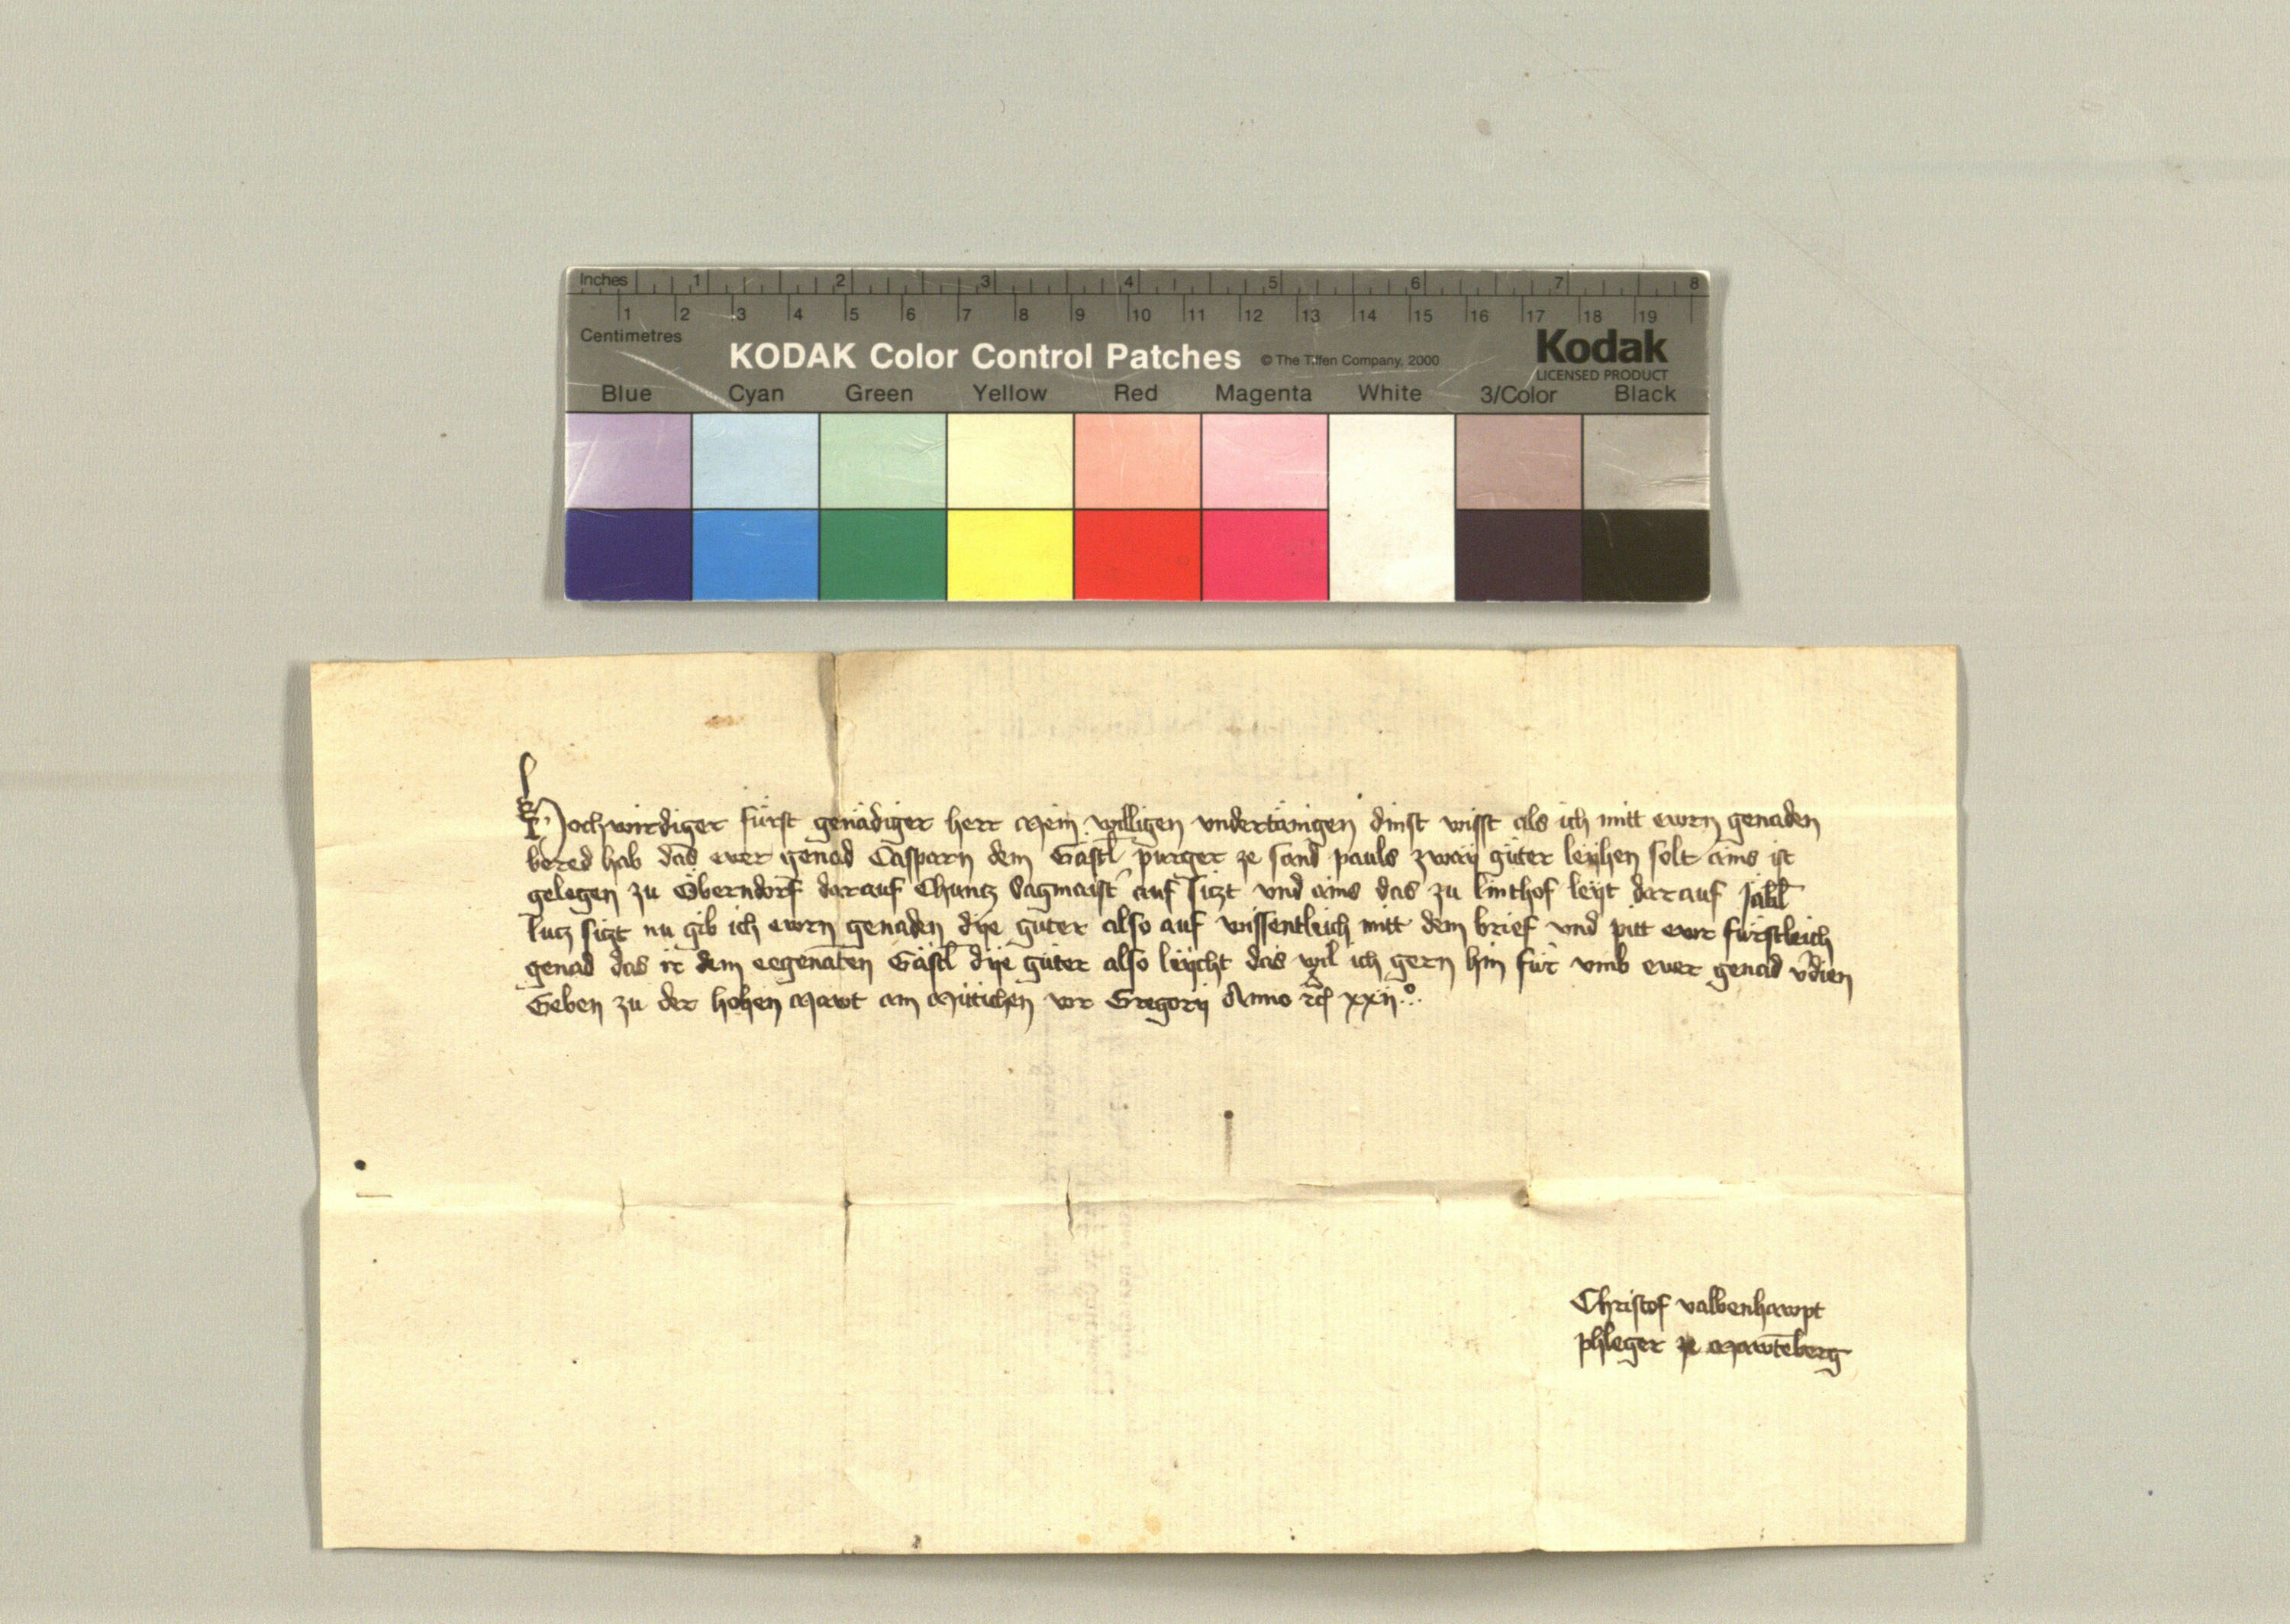 Inches 1 2 3 4 5 6 7 8
1 2 3 4 5 6 7 8 9 10 11 12 13 14 15 16 17 18 19
Centimetres
KODAK Color Control Patches © The Tiffen Company, 2000 Kodak
LICENSED PRODUCT
Blue Cyan Green Yellow Red Magenta White 3/Color Black
Hochwirdiger fürst genädiger herr Mein willigen vndertänigen dinst wisst als ich mitt ewrn genaden
bered hab das ewer genad Casparn dem Gästl purger ze sand pauls zway güter leyhen solt ains ist
gelegen zu Oberndorf darauf Chuntz Sagmaist̄ auf sitzt vnd ains das zu linthof leyt darauf Jäkl̄
lutz sitzt nu gib ich ewrn genaden dye güter also auf wissentleich mitt dem brief vnd pitt ewr fürstleich
genad das ir dem eegenaten̄ Gästl̄ dye güter also leycht das wil ich gern hin für vmb ewer genad v̄dien
Geben zu der hohen Mawt am Mittichen vor Gregorij Anno xxij°
Christof valbenhawpt
phleger ze Mawtēberg